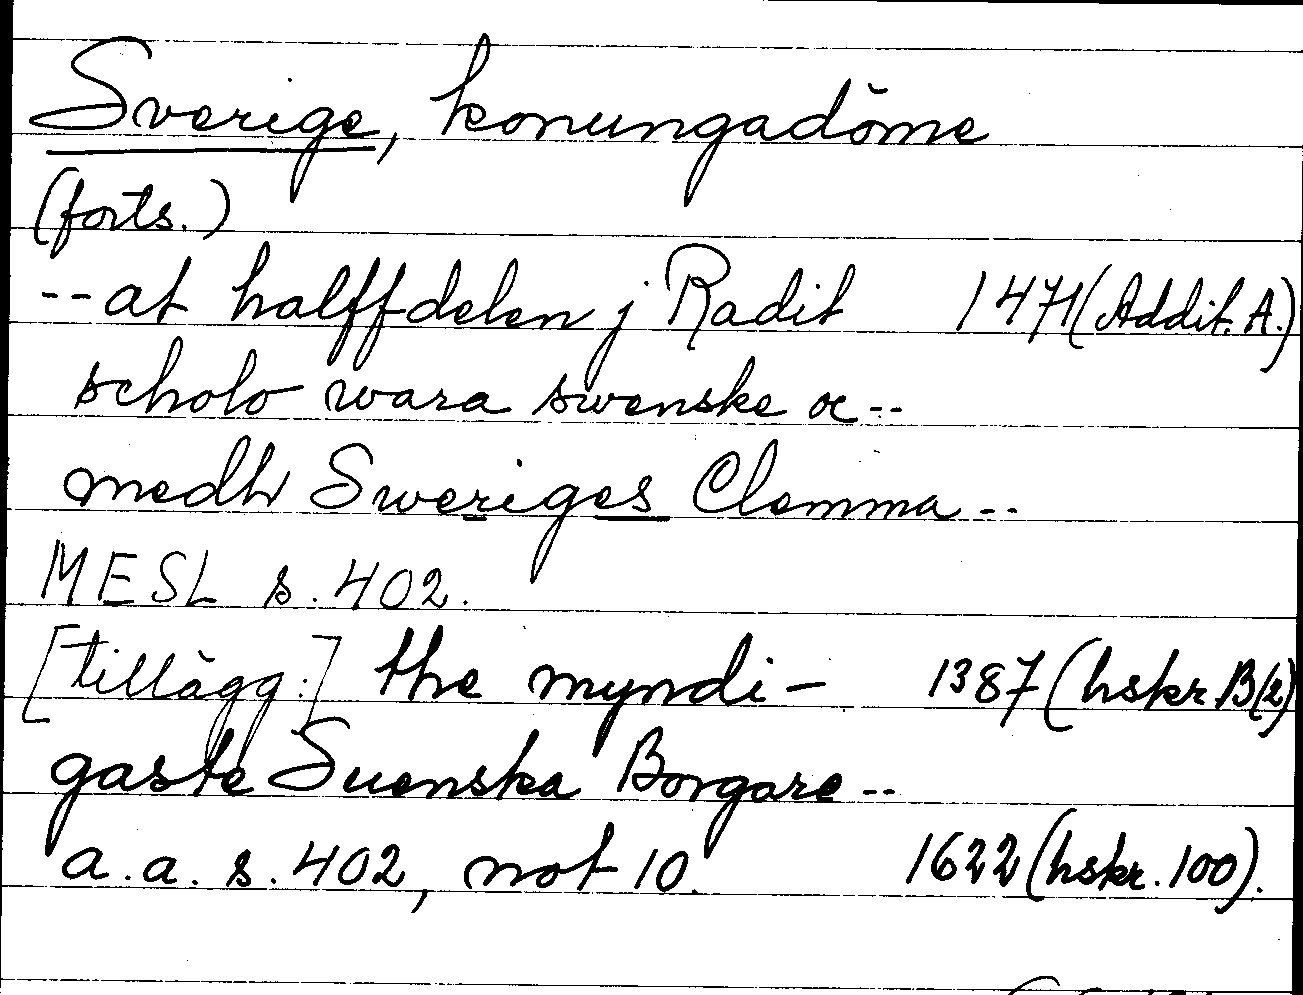 Sverige, konungadöme
(forts.)
--at halffdelen j Radit 1471 (Addit. A.)
scholo wara swenske oc--
medh Sweriges Clemma--
MESL s. 402.
[tillägg:] the myndi- 1387 (hskr. B(2)
gaste Suenska Borgare--
a.a. s. 402, not 10. 1622 (hskr. 100).